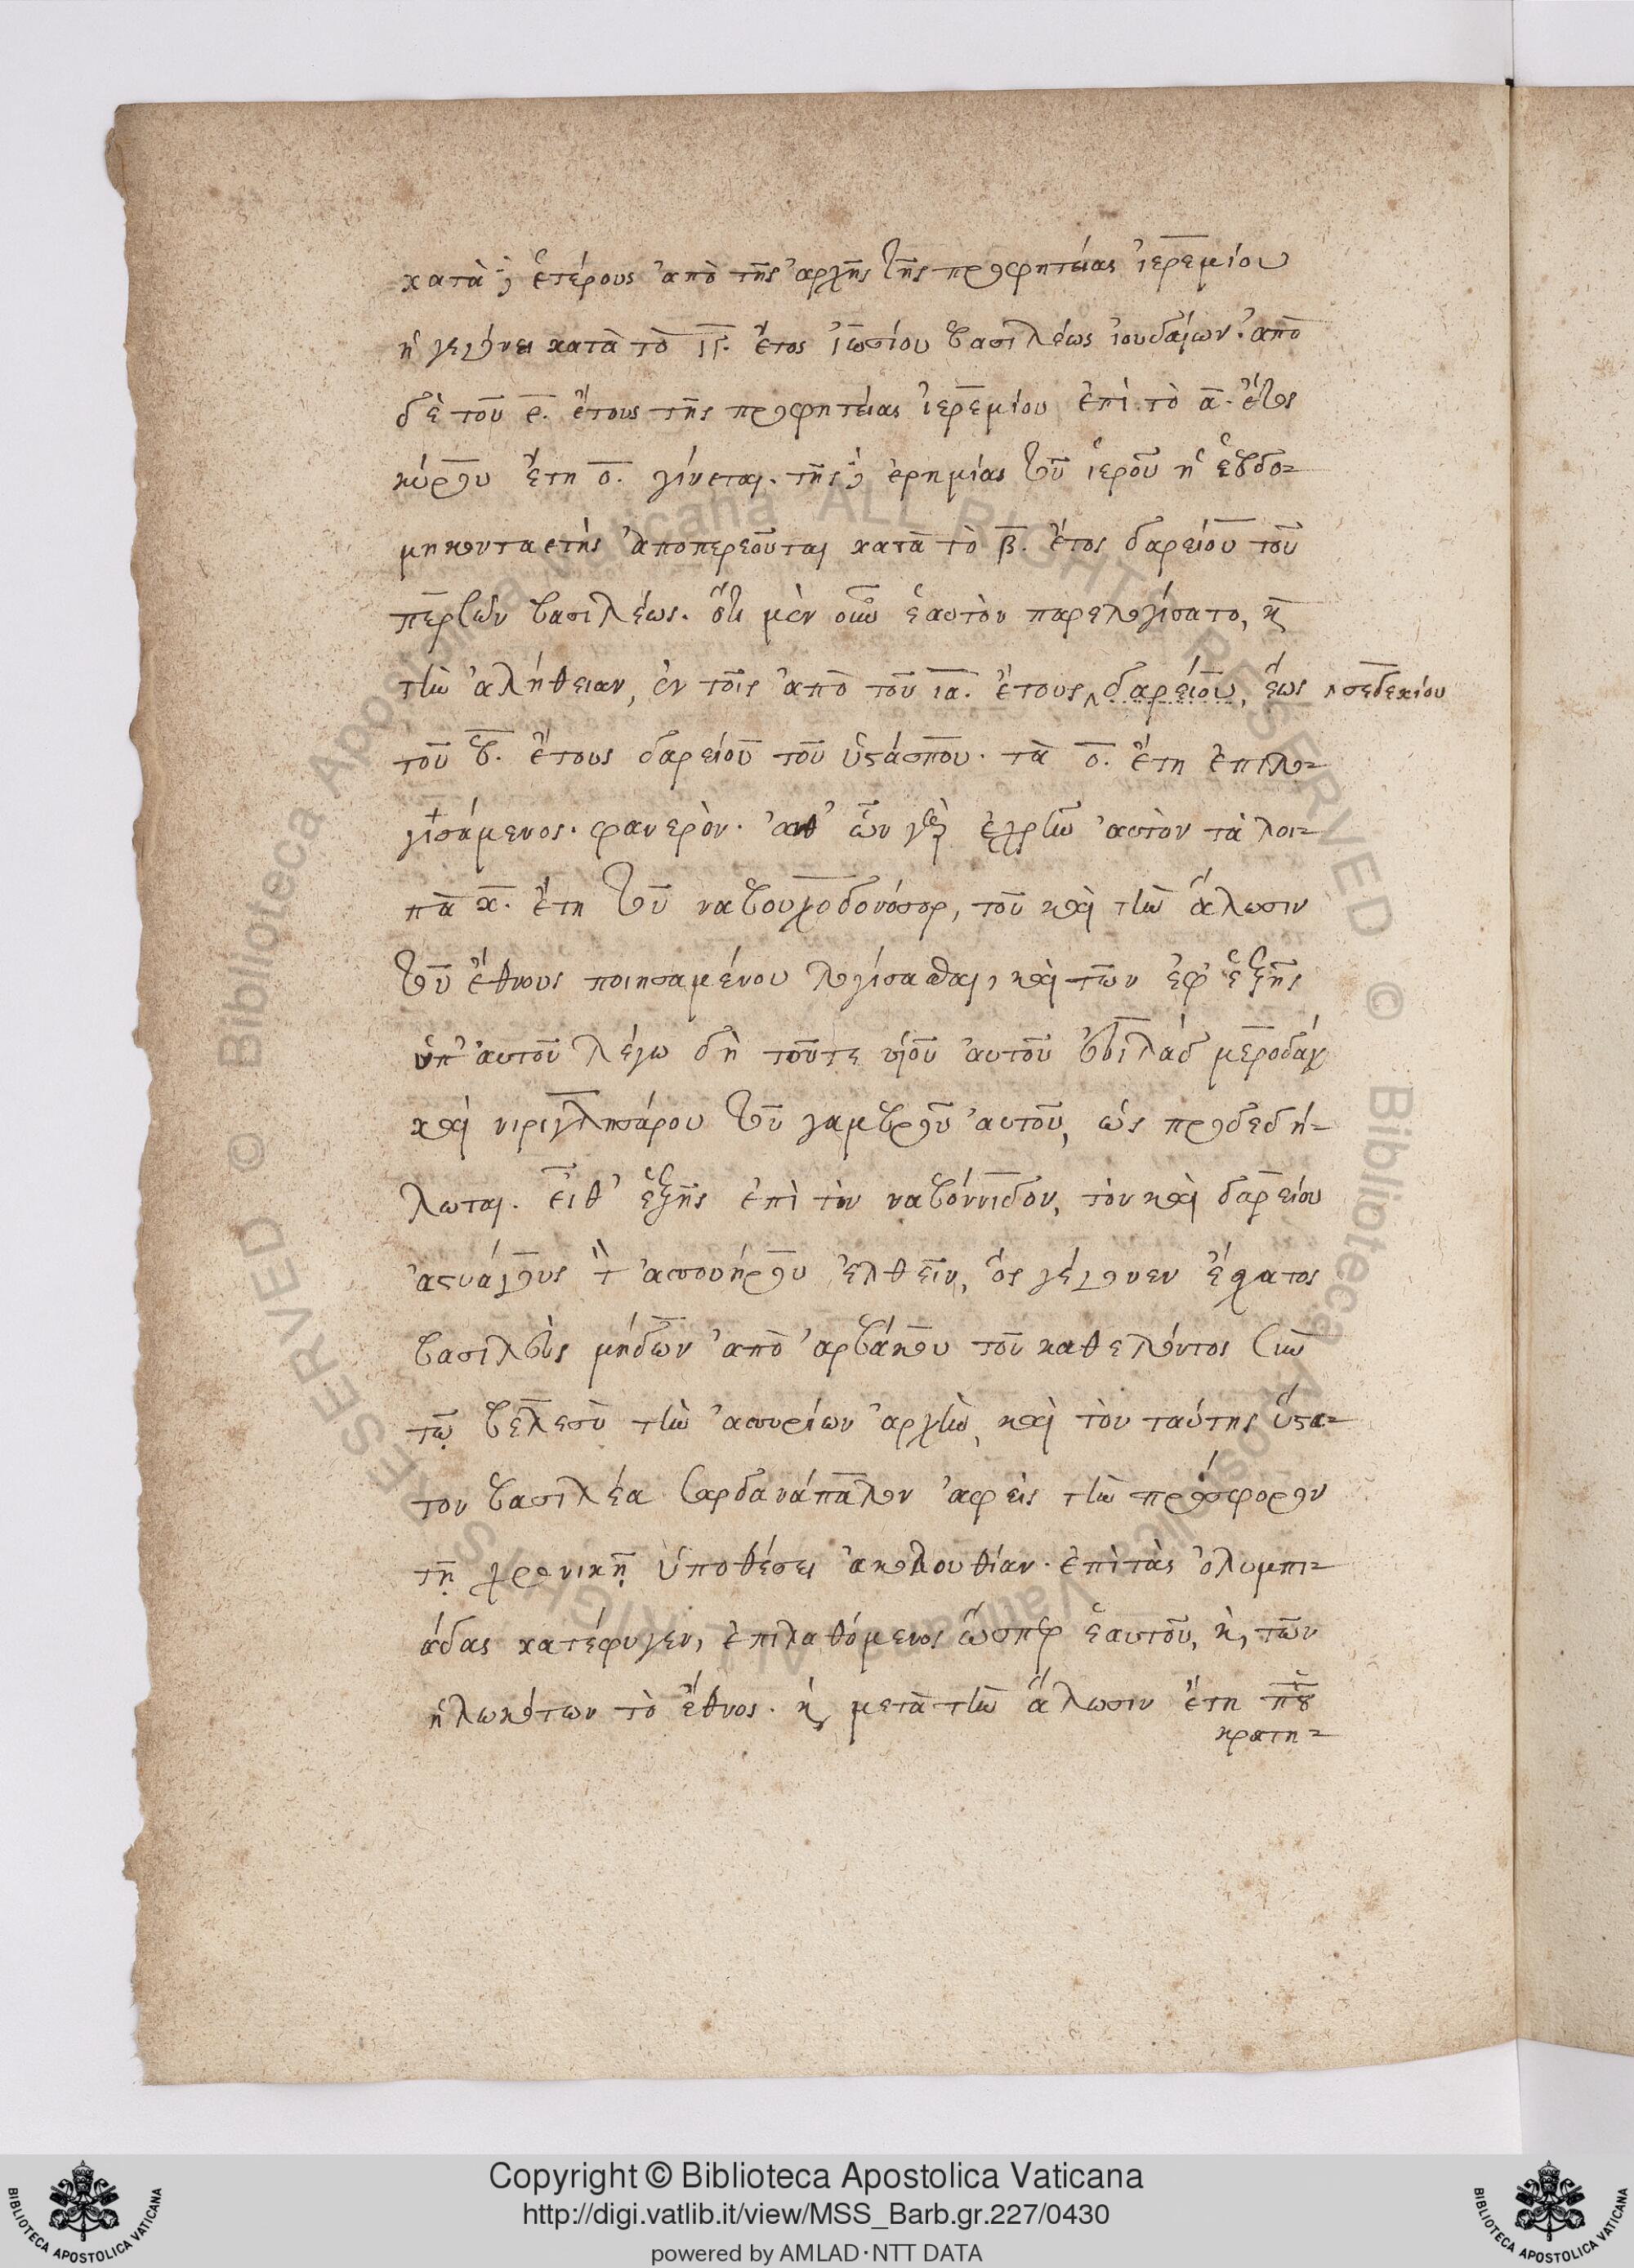 κατὰ δ ἑτέρους ἀπὸ τῆς ἀρχῆς τῆς προφητείας ἱερεμίου
ἣ γέγονε κατὰ τὸ ιγ. ἔτος ἰωσίου βασιλέως ἰουδαίων. ἀπὸ
δὲ τοῦ ε. ἔτους τῆς προφητείας ἱερεμίου ἐπὶ τὸ α. ἔτος
κύρου ἔτη ο. γίνεται. τῆς δ ἐρημίας τοῦ ἱεροῦ ἡ ἑβδο-
μηκονταετὴς ἀποπεραιοῦται κατὰ τὸ β. ἔτος δαρείου τοῦ
περσῶν βασιλέως. ὅτι μὲν οὖν ἑαυτὸν παρελογίσατο, κ
τὴν ἀλήθειαν, ἐν τοῖς ἀπὸ τοῦ ια. ἔτους δαρείου, ἕως σεδεκίου
τοῦ β. ἔτους δαρείου τοῦ ὑστάσπου. τὰ ο. ἔτη ἐπιλο-
γισάμενος. φανερὸν. ἀνθ' ὧν γὰρ ἐχρῆν αὐτὸν τὰ λοι-
πὰ κ. ἔτη τοῦ ναβουχοδονόσορ, τοῦ καὶ τὴν ἅλωσιν
τοῦ ἔθνους ποιησαμένου λογίσασθαι, καὶ τῶν ἐφ' ἑξῆς
ὑπ' αὐτοῦ λέγω δὴ τοῦτε υἱοῦ αὐτοῦ εὐιλὰδ μεροδὰχ
καὶ νιριγλησάρου τοῦ γαμβροῦ αὐτοῦ, ὡς προδεδή-
λωται. εἶθ' ἑξῆς ἐπὶ τὸν ναβόννιδον, τὸν καὶ δαρείου
ἀστυάγους ἢ ἀσσουήρου ἐλθεῖν, ὃς γέγονεν ἔσχατος
βασιλεὺς μήδων ἀπὸ ἀρβάκου τοῦ καθελόντος σὺν
τῷ βελεσὺ τὴν ἀσσυρίων ἀρχὴν, καὶ τὸν ταύτης ὕστα-
τον βασιλέα σαρδανάπαλον ἀφεὶς τὴν πρόσφορον
τῇ χρονικῇ ὑποθέσει ἀκολουθίαν. ἐπὶ τὰς ὀλυμπι-
άδας κατέφυγεν, ἐπιλαθόμενος ὥσπερ ἑαυτοῦ, κ, τῶν
ἡλωκότων τὸ ἔθνος. κ μετὰ τὴν ἅλωσιν ἔτη
κρατη-
Copyright © Biblioteca Apostolica Vaticana
http://digi.vatlib.it/view/MSS_Barb.gr.227/0430
powered by AMLAD·NTT DATA